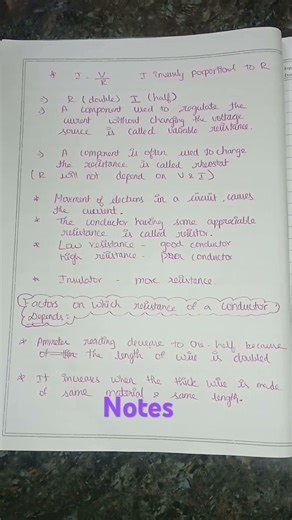 * I = V/R I inversly porportional to R
→ R (double) I (half)
→ A component used to regulate the
current without changing the voltage
source is called variable resistance.
→ A component is often used to change
the resistance is called rheostat
( R will not depend on V & I )
* Movement of electrons in a circuit, causes
the current.
* The conductor having some appreciable
resistance is called resistor.
* Low resistance - good conductor
High resistance - poor conductor
* Insulator - more resistance
Factors on which resistance of a conductor
Depends:-
* Ammeter reading decrease to one half because
of the length of wire is doubled
* It increases when the thick wire is made
of same material & same length.
Notes